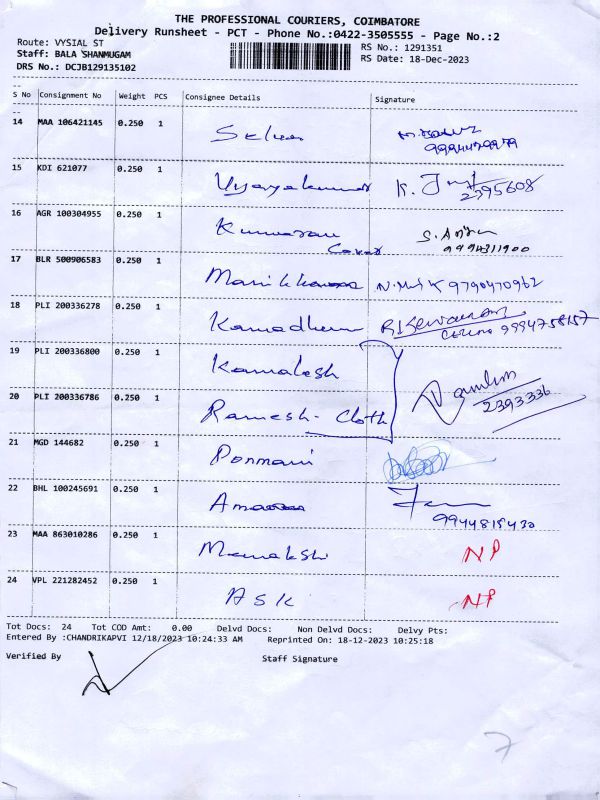 THE PROFESSIONAL COURIERS, COIMBATORE
Delivery Runsheet - PCT - Phone No.:0422-3505555 - Page No.:2
Route: VYSIAL ST RS No.: 1291351
Staff: BALA SHANMUGAM RS Date: 18-Dec-2023
DRS No.: DCJB129135102
S No Consignment No Weight PCS Consignee Details Signature
14 MAA 106421145 0.250 1 Selvan
15 KDI 621077 0.250 1 Vijayakumar K. 2395608
16 AGR 100304955 0.250 1 Kumaran S. 9994311900
Cover
17 BLR 500906583 0.250 1 9790470962
18 PLI 200336278 0.250 1 Kamadhenu
19 PLI 200336800 0.250 1 Kamalesh
20 PLI 200336786 0.250 1 Ramesh - Cloth 2393336
21 MGD 144682 0.250 1 Ponmani
22 BHL 100245691 0.250 1
23 MAA 863010286 0.250 1 Meenakshi NP
24 VPL 221282452 0.250 1 ASK NP
Tot Docs: 24 Tot COD Amt: 0.00 Delvd Docs: Non Delvd Docs: Delvy Pts:
Entered By :CHANDRIKAPVI 12/18/2023 10:24:33 AM Reprinted On: 18-12-2023 10:25:18
Verified By Staff Signature
7